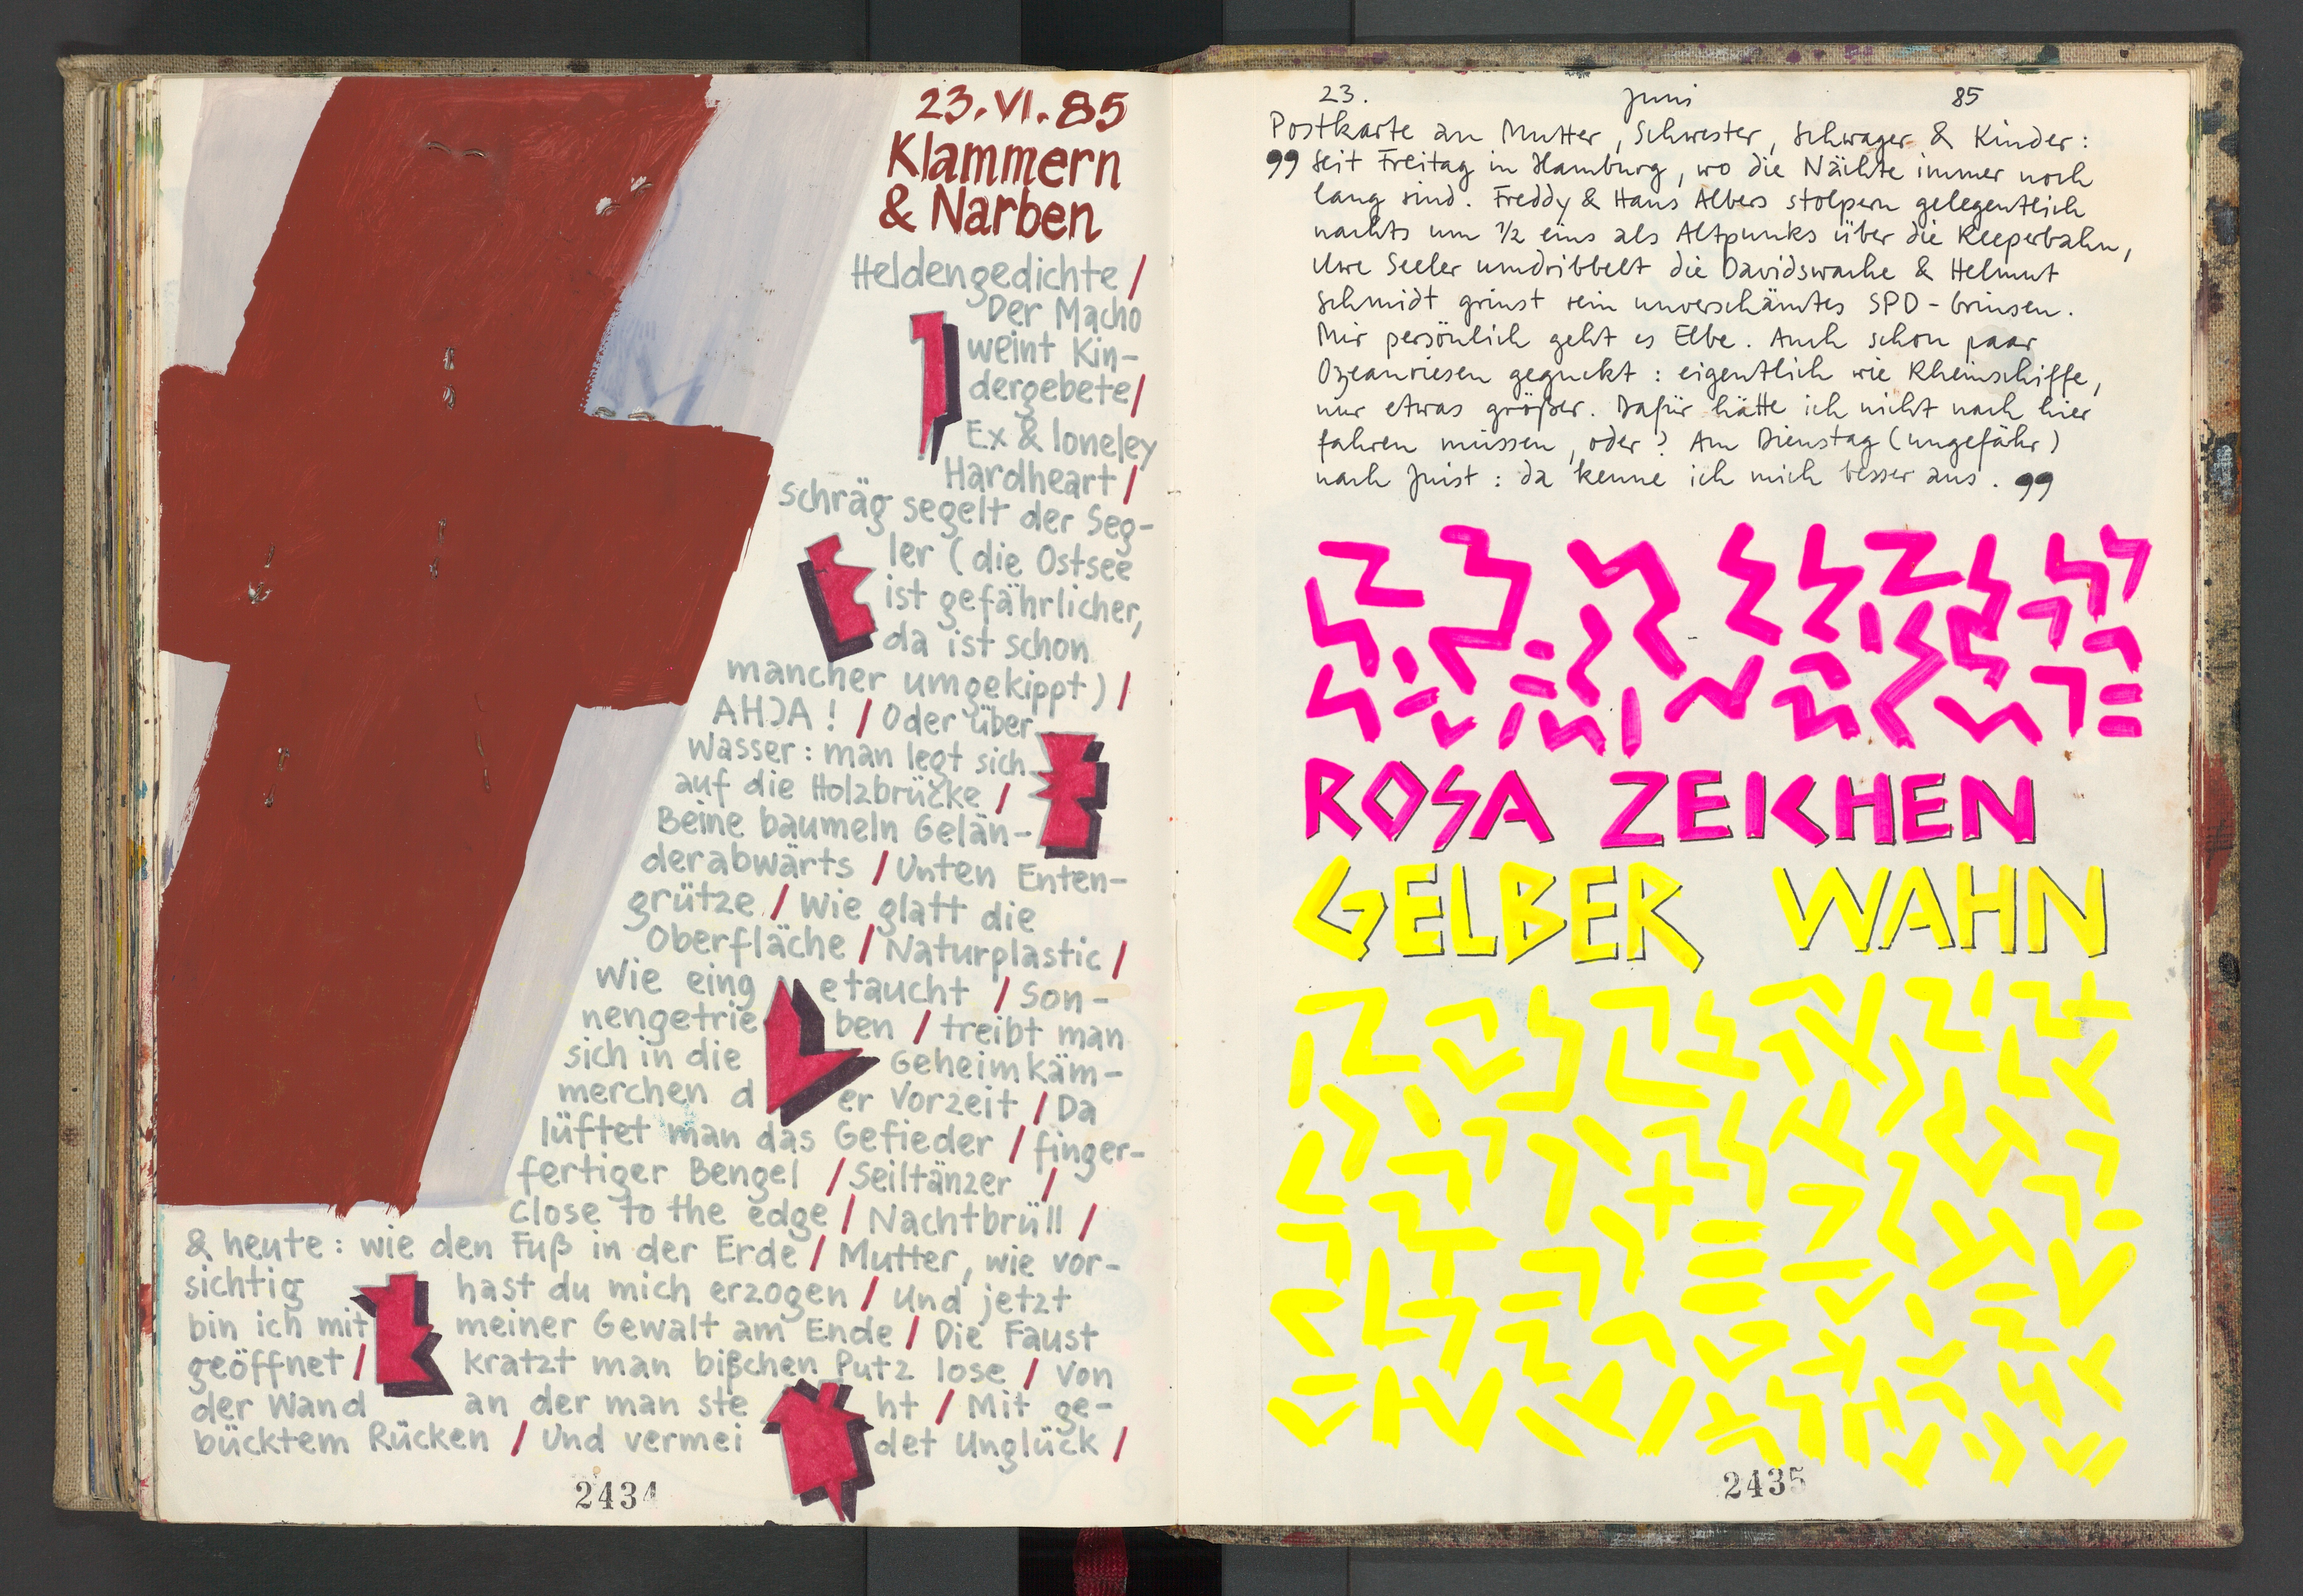 23.VI.85
Klammern
& Narben
Heldengedichte /
Der Macho
weint Kin-
dergebete /
Ex & loneley
Hardheart /
schräg segelt der Seg-
ler (die Ostsee
ist gefährlicher,
da ist schon
mancher umgekippt) /
AHJA! / Oder über
Wasser: man legt sich
auf die Holzbrücke /
Beine baumeln Gelän-
derabwärts / Unten Enten-
grütze / Wie glatt die
Oberfläche / Naturplastic /
Wie eing etaucht / Son-
nengetrie ben / treibt man
sich in die Geheimkäm-
merchen d er Vorzeit / Da
lüftet man das Gefieder / finger-
fertiger Bengel / Seiltänzer /
Close to the edge / Nachtbrüll /
& heute: wie den Fuß in der Erde / Mutter, wie vor-
sichtig hast du mich erzogen / Und jetzt
bin ich mit meiner Gewalt am Ende / Die Faust
geöffnet / kratzt man bißchen Putz lose / Von
der Wand an der man ste ht / Mit ge-
bücktem Rücken / Und vermei det Unglück /
2434
23. Juni 85
Postkarte an Mutter, Schwester, Schwager & Kinder:
„ Seit Freitag in Hamburg, wo die Nächte immer noch
lang sind. Freddy & Hans Albers stolpern gelegentlich
nachts um 1/2 eins als Altpunks über die Reeperbahn,
Uwe Seeler umdribbelt die Davidswache & Helmut
Schmidt grinst sein unverschämtes SPD-Grinsen.
Mir persönlich geht es Elbe. Auch schon paar
Ozeanriesen geguckt: eigentlich wie Rheinschiffe,
nur etwas größer. Dafür hätte ich nicht nach hier
fahren müssen, oder? Am Dienstag (ungefähr)
nach Juist: da kenne ich mich besser aus. „
ROSA ZEICHEN
GELBER WAHN
2435